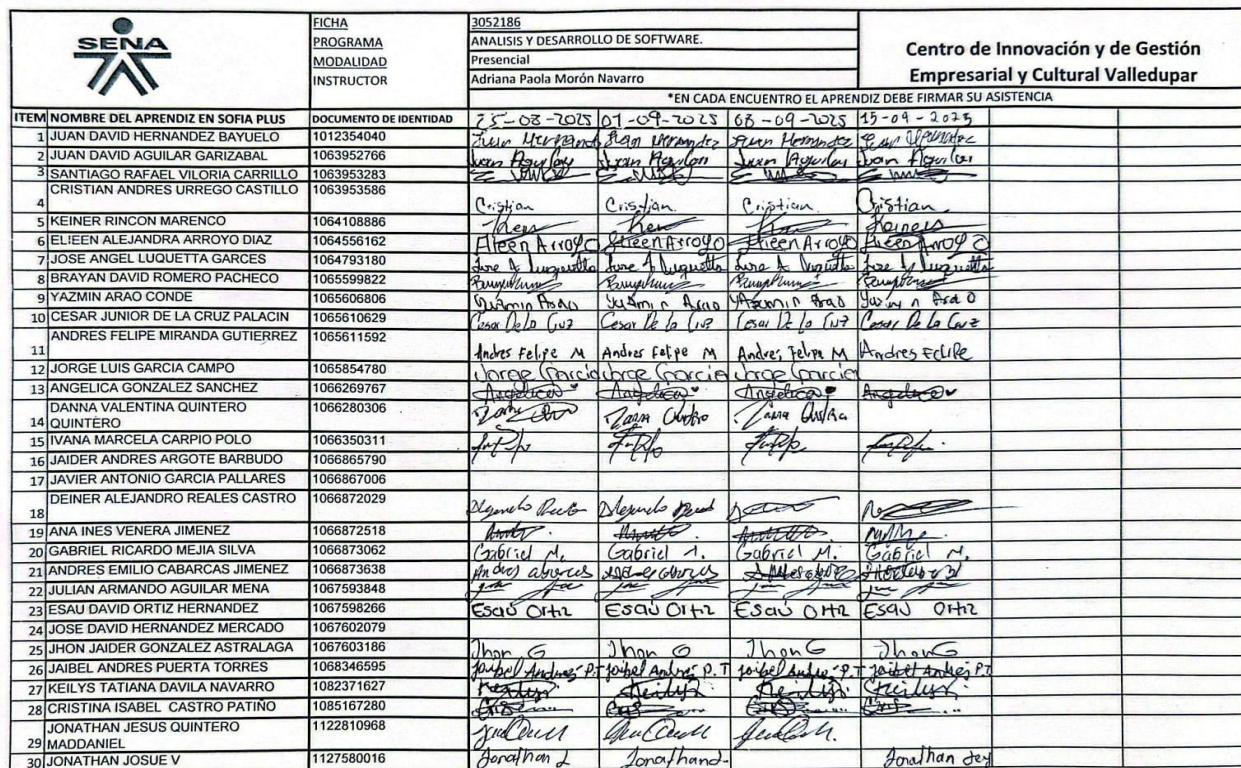 SENA
FICHA 3052186
PROGRAMA ANALISIS Y DESARROLLO DE SOFTWARE.
MODALIDAD Presencial
INSTRUCTOR Adriana Paola Morón Navarro
Centro de Innovación y de Gestión
Empresarial y Cultural Valledupar
*EN CADA ENCUENTRO EL APRENDIZ DEBE FIRMAR SU ASISTENCIA
ITEM NOMBRE DEL APRENDIZ EN SOFIA PLUS DOCUMENTO DE IDENTIDAD 25-08-2025 01-09-2025 08-09-2025 15-09-2025
1 JUAN DAVID HERNANDEZ BAYUELO 1012354040 Juan Hernandez Juan Hernandez Juan Hernandez
2 JUAN DAVID AGUILAR GARIZABAL 1063952766 Juan Aguilar Juan Aguilar Juan Aguilar Juan Aguilar
3 SANTIAGO RAFAEL VILORIA CARRILLO 1063953283
4 CRISTIAN ANDRES URREGO CASTILLO 1063953586 Cristian Cristian Cristian Cristian
5 KEINER RINCON MARENCO 1064108886
6 ELIEEN ALEJANDRA ARROYO DIAZ 1064556162 Elieen Arroyo Elieen Arroyo Elieen Arroyo Elieen Arroyo
7 JOSE ANGEL LUQUETTA GARCES 1064793180 Jose A Luquetta Jose A Luquetta Jose A Luquetta Jose A Luquetta
8 BRAYAN DAVID ROMERO PACHECO 1065599822
9 YAZMIN ARAO CONDE 1065606806 Yazmin Arao Yazmin Arao Yazmin Arao Yazmin Arao
10 CESAR JUNIOR DE LA CRUZ PALACIN 1065610629 Cesar De La Cruz Cesar De la Cruz Cesar De la Cruz Cesar De la Cruz
11 ANDRES FELIPE MIRANDA GUTIERREZ 1065611592 Andres Felipe M Andres Felipe M Andres Felipe M Andres Felipe
12 JORGE LUIS GARCIA CAMPO 1065854780 Jorge Garcia Jorge Garcia Jorge Garcia
13 ANGELICA GONZALEZ SANCHEZ 1066269767 Angelica Angelica Angelica Angelica
14 DANNA VALENTINA QUINTERO
QUINTERO 1066280306
15 IVANA MARCELA CARPIO POLO 1066350311
16 JAIDER ANDRES ARGOTE BARBUDO 1066865790
17 JAVIER ANTONIO GARCIA PALLARES 1066867006
18 DEINER ALEJANDRO REALES CASTRO 1066872029
19 ANA INES VENERA JIMENEZ 1066872518
20 GABRIEL RICARDO MEJIA SILVA 1066873062 Gabriel M. Gabriel M. Gabriel M. Gabriel M.
21 ANDRES EMILIO CABARCAS JIMENEZ 1066873638
22 JULIAN ARMANDO AGUILAR MENA 1067593848
23 ESAU DAVID ORTIZ HERNANDEZ 1067598266 Esaú Ortiz Esaú Ortiz Esaú Ortiz Esaú Ortiz
24 JOSE DAVID HERNANDEZ MERCADO 1067602079
25 JHON JAIDER GONZALEZ ASTRALAGA 1067603186 Jhon G Jhon G Jhon G Jhon G
26 JAIBEL ANDRES PUERTA TORRES 1068346595 Jaibel Andrés P.T Jaibel Andrés P.T Jaibel Andrés P.T Jaibel Andrés P.T
27 KEILYS TATIANA DAVILA NAVARRO 1082371627 Keilys Keilys Keilys Keilys
28 CRISTINA ISABEL CASTRO PATIÑO 1085167280
29 JONATHAN JESUS QUINTERO
MADDANIEL 1122810968
30 JONATHAN JOSUE V 1127580016 Jonathan J Jonathan J Jonathan Jey